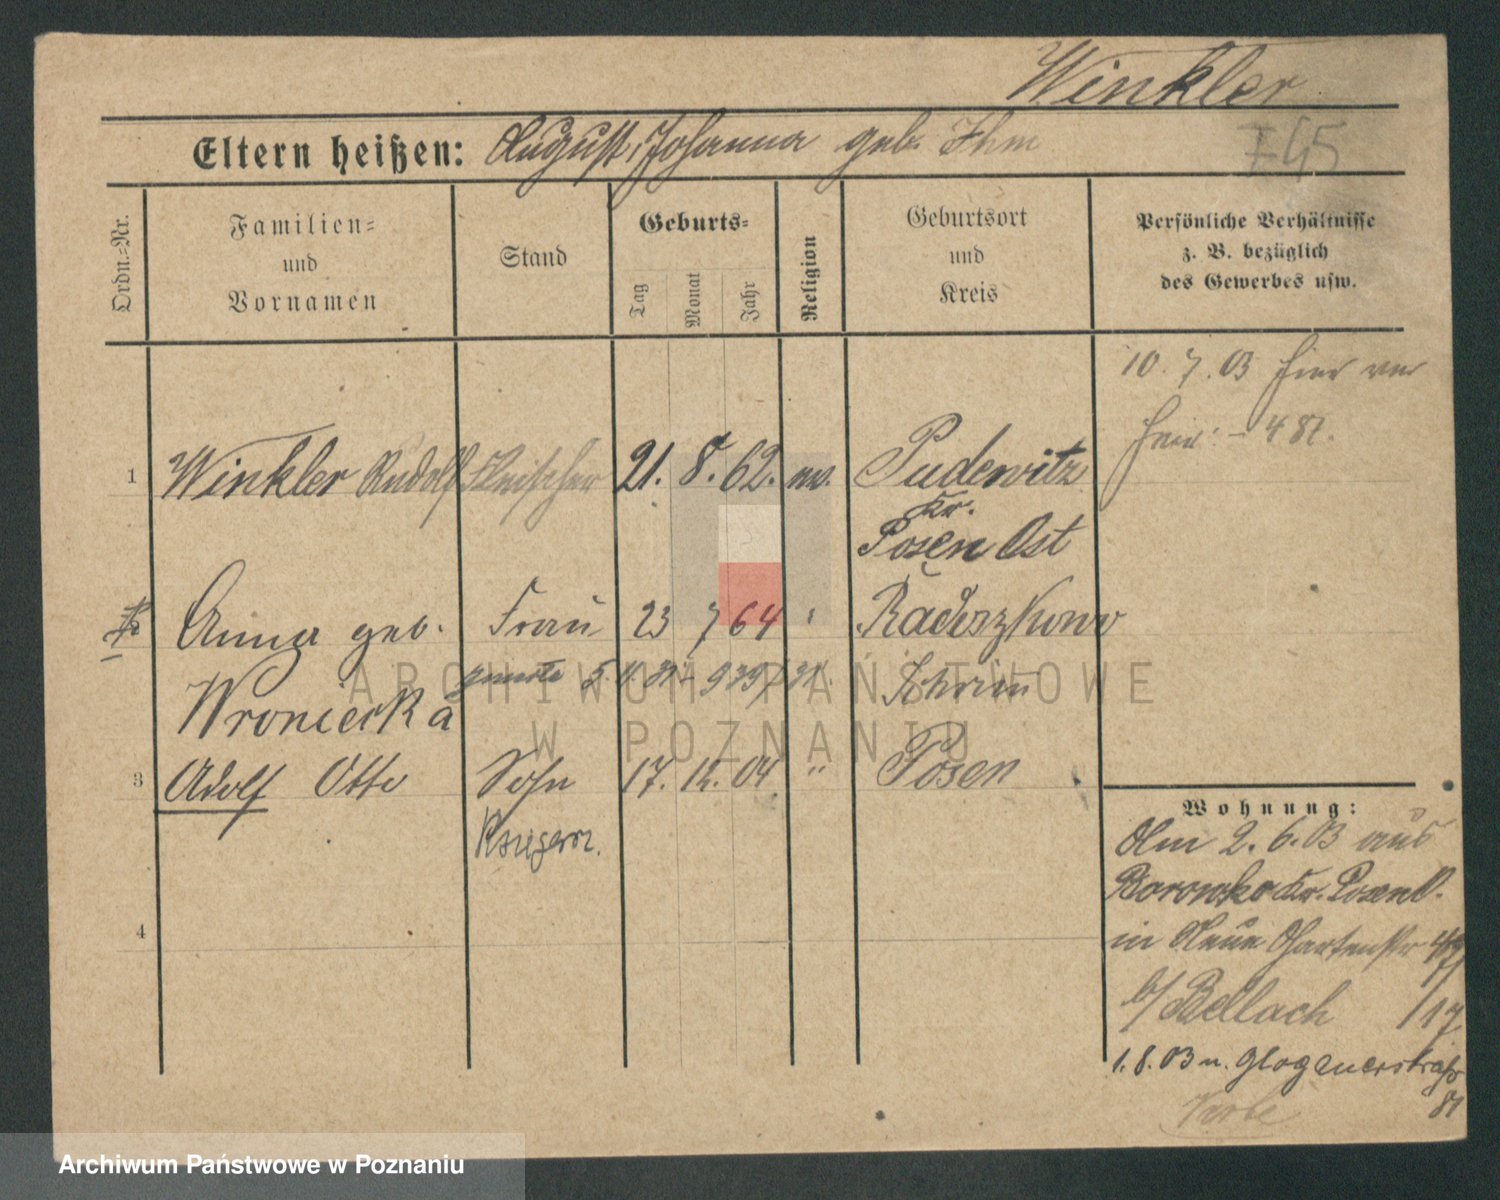 Winkler
Eltern heißen: August, Johanna geb. Ihm
Ordn.-Nr.
Familien-
und
Vornamen
Stand
Geburts-
Tag
Monat
Jahr
Religion
Geburtsort
und
Kreis
Persönliche Verhältnisse
z. B. bezüglich
des Gewerbes usw.
10. 7. 03
1 Winkler Rudolf Fleischer 21. 8. 62. ev. Pudewitz
Kr.
Posen Ost
Anna geb. Frau 23 7 64 Radzkowo
Wroniecka Schrim
3 Adolf Otto Sohn 17. 12. 04 " Posen
4
Wohnung:
Am 2. 6. 03 aus
Borowko Kr. Posen O.
in Neue Gartenstr
b/ Bellach /17
1. 8. 03 n. Glogauerstraße
81
ARCHIWUM PAŃSTWOWE
W POZNANIU
Archiwum Państwowe w Poznaniu